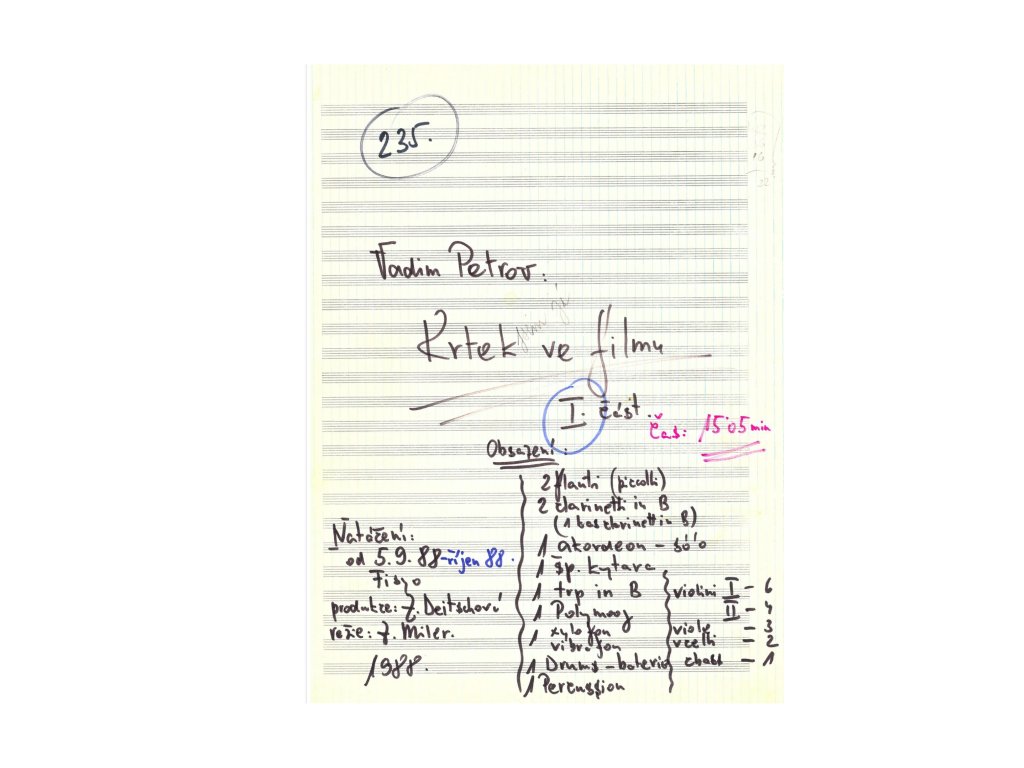 235.
Vadim Petrov:
Krtek ve filmu
I. část.
Čas: 15'05 min
Obsazení:
2 flauti (piccolli)
2 clarinetti in B
(1 bas clarinett in B)
1 akordeon - sólo
1 šp. kytara
1 trp in B
1 Polymoog
1 xylofon
vibrafon
1 Drums - baterie
1 Percussion
violini I - 6
II - 4
viole - 3
vcelli - 2
cbassi - 1
Natáčení:
od 5.9.88 - říjen 88.
Fisyo
produkce: J. Deitschová
režie: Z. Miler.
1988.